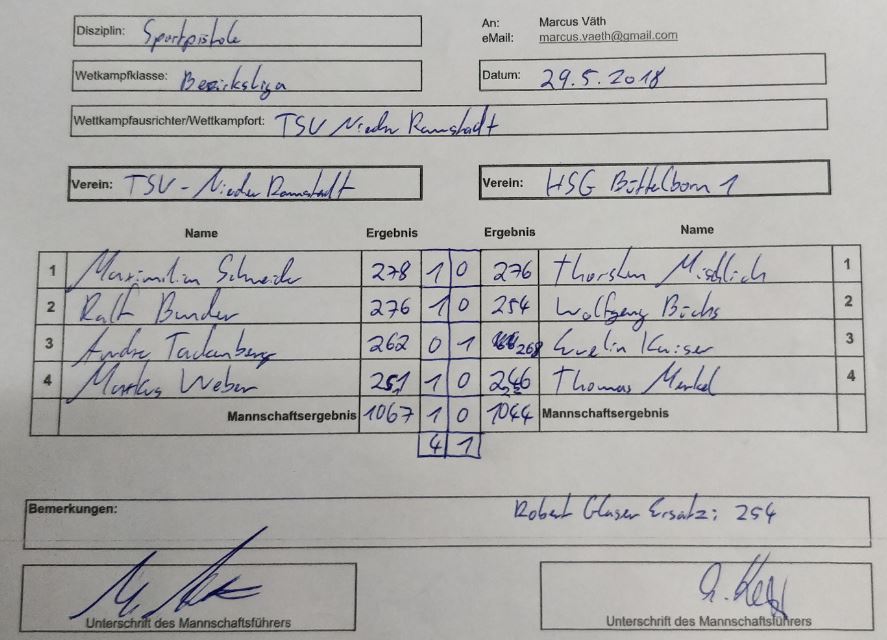 Disziplin: Sportpistole
An: Marcus Väth
eMail: marcus.vaeth@gmail.com
Wetkampfklasse: Bezirksliga
Datum: 29.5.2018
Wettkampfausrichter/Wettkampfort: TSV Nieder Ramstadt
Verein: TSV-Nieder Ramstadt
Verein: HSG Büttelborn 1
Name Ergebnis Ergebnis Name
1 Maximilian Schneider 278 1 0 276 Thorsten Mischlich 1
2 Ralf Bunder 276 1 0 254 Wolfgang Büchs 2
3 Andre Tackenberg 262 0 1 268 Evelin Kaiser 3
4 Markus Weber 251 1 0 246 Thomas Merkel 4
Mannschaftsergebnis 1067 1 0 1044 Mannschaftsergebnis
4 1
Bemerkungen: Robert Glaser Ersatz: 254
Unterschrift des Mannschaftsführers
Unterschrift des Mannschaftsführers